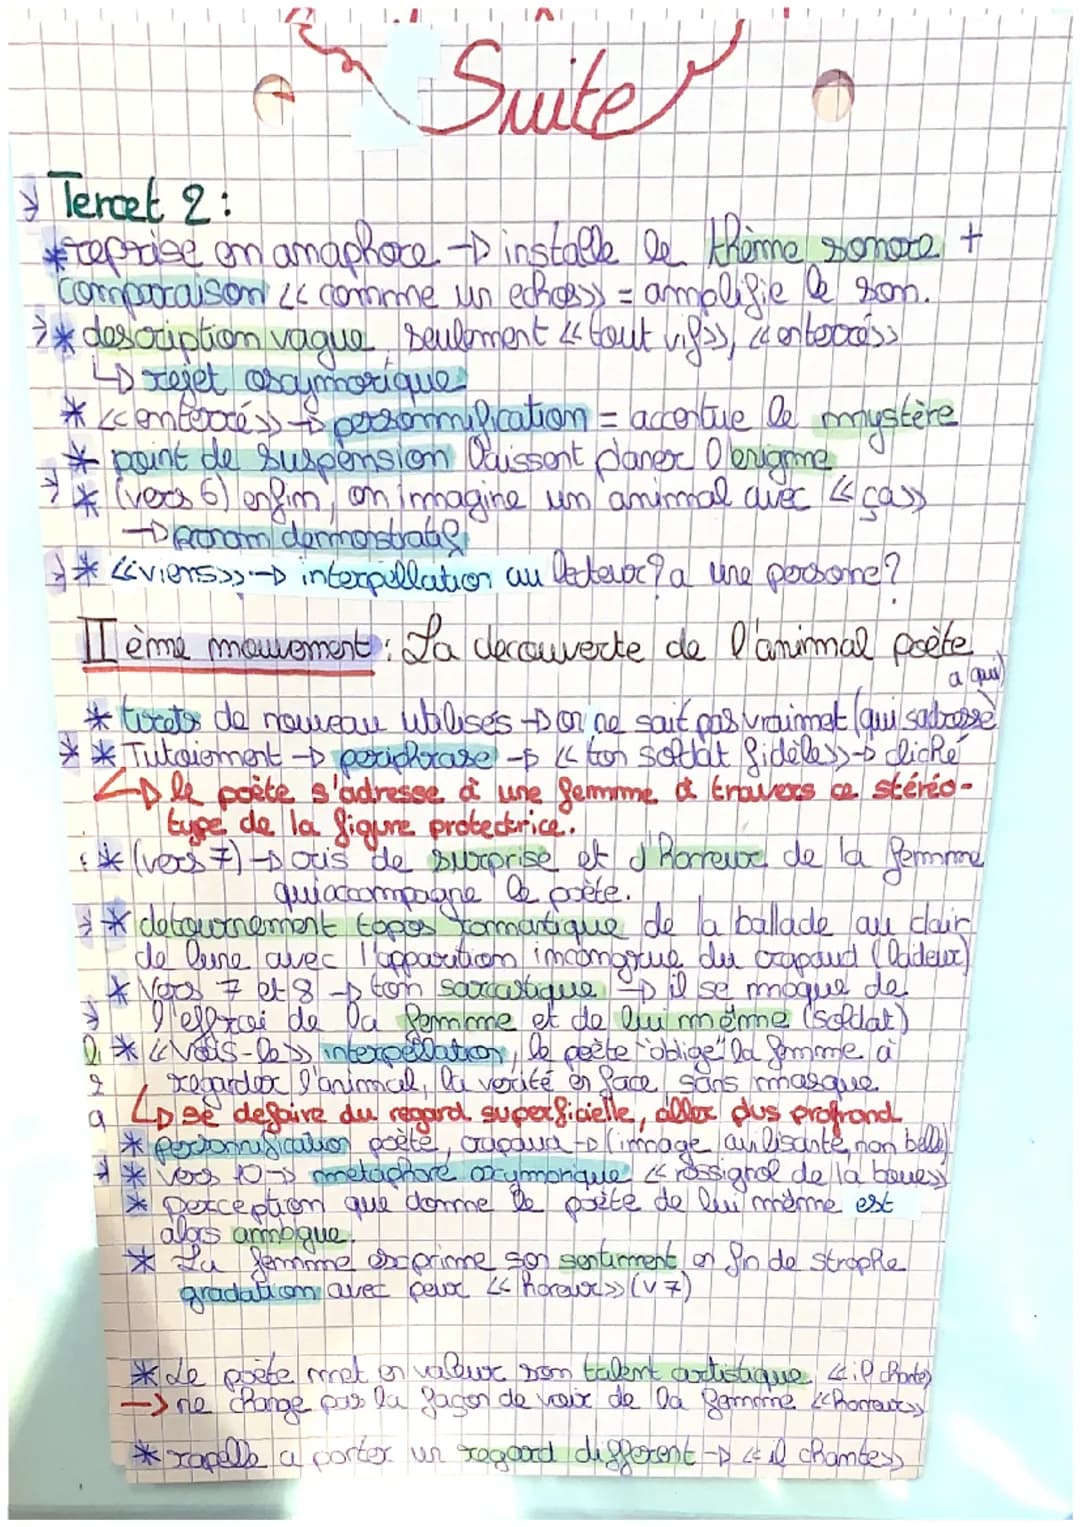 Suite
Tercet 2 :
* reprise en amaphore → installe le thème sonore +
comparaison << comme un echos >> = amplifie le son.
* description vague seulement << tout vif >>, << enterrés >>
↳ rejet oxaymorique
* << enterré >> → personnification = accentue le mystère
* point de suspension laissent planer l'enigme
* (vers 6) enfin, on immagine un animal avec << ça >>
→ pronom demonstratif
* << viens >> → interpellation au lecteur? a une personne?
II ème mouvement : La decouverte de l'animal poète
a qui)
* tirets de nouveau utilisés → on ne sait pas vraimet (qui sadresse
* Tutaiement → periphrase → << ton soldat fidèle >> → cliché
↳ le poète s'adresse à une femme à travers ce stéréo-
type de la figure protectrice.
* (vers 7) → cris de surprise et d'horreur de la femme
qui accompagne le poète.
* detournement topos romantique de la ballade au clair
de lune avec l'apparition incongrue du crapaud (laideur)
* Vers 7 et 8 → ton sarcastique → il se moque de
l'effroi de la femme et de lui même (soldat)
* << Vois-le >> interpellation, le poète "oblige" la femme à
regarder l'animal, la verité en face, sans masque.
↳ se defaire du regard superficielle, aller plus profrond
* personnification poète, crapaud → (immage avilisante, non belle)
* vers 10 → metaphore oxymorique << rossignol de la boue >>
* perception que donne le poète de lui même est
alors ambigue.
* La femme exprime son sentiment en fin de strophe
gradation avec peur << horeur >> (v 7)
* Le poète met en valeur son talent artistique << il chante >>
→ ne change pas la façon de voir de la femme << horreur >>
* rapelle a porter un regard different → << il chante >>